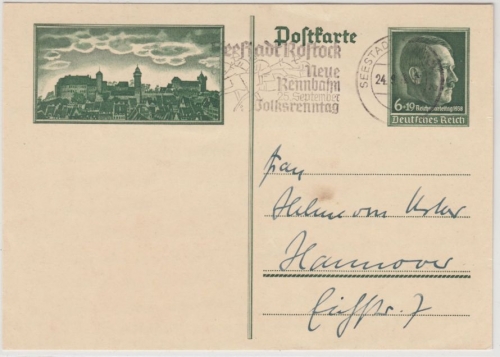 Postkarte
Seestadt Rostock
Neue
Rennbahn
25. September
Volksrenntag
SEESTAD
24.
6+19 Reichsparteitag 1938
Deutsches Reich
Frau
Helene von
Hannover
7